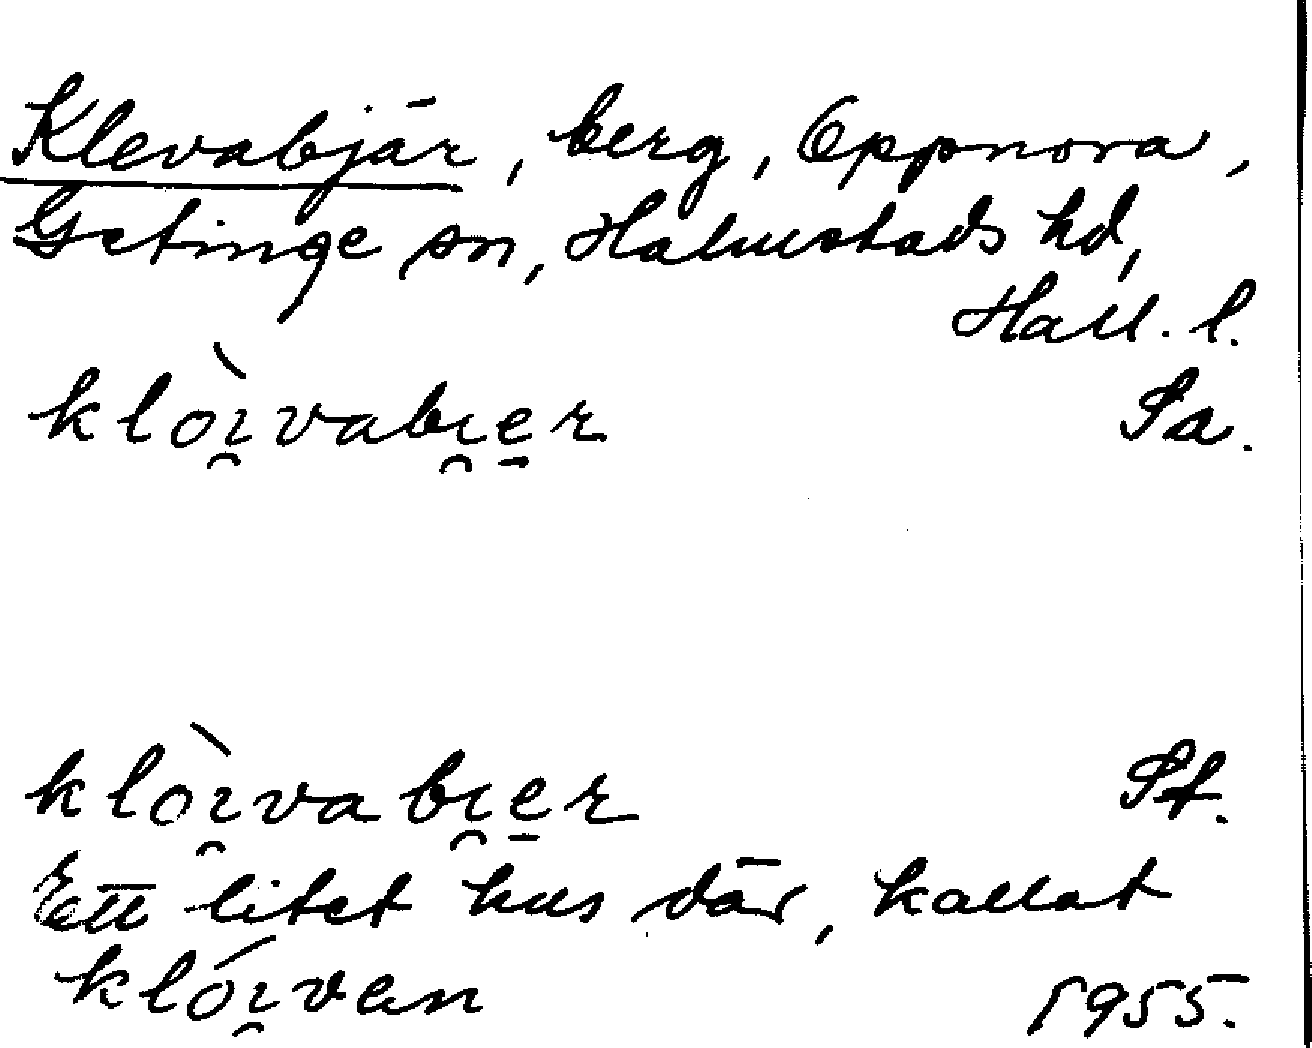 Klevabjär, berg, Oppnora,
Getinge sn, Halmstads hd,
Hall. l.
klòı̯vabı̯e̠r Sa.
klòı̯vabı̯e̠r St.
Ett litet hus där, kallat
klóı̯van 1955.